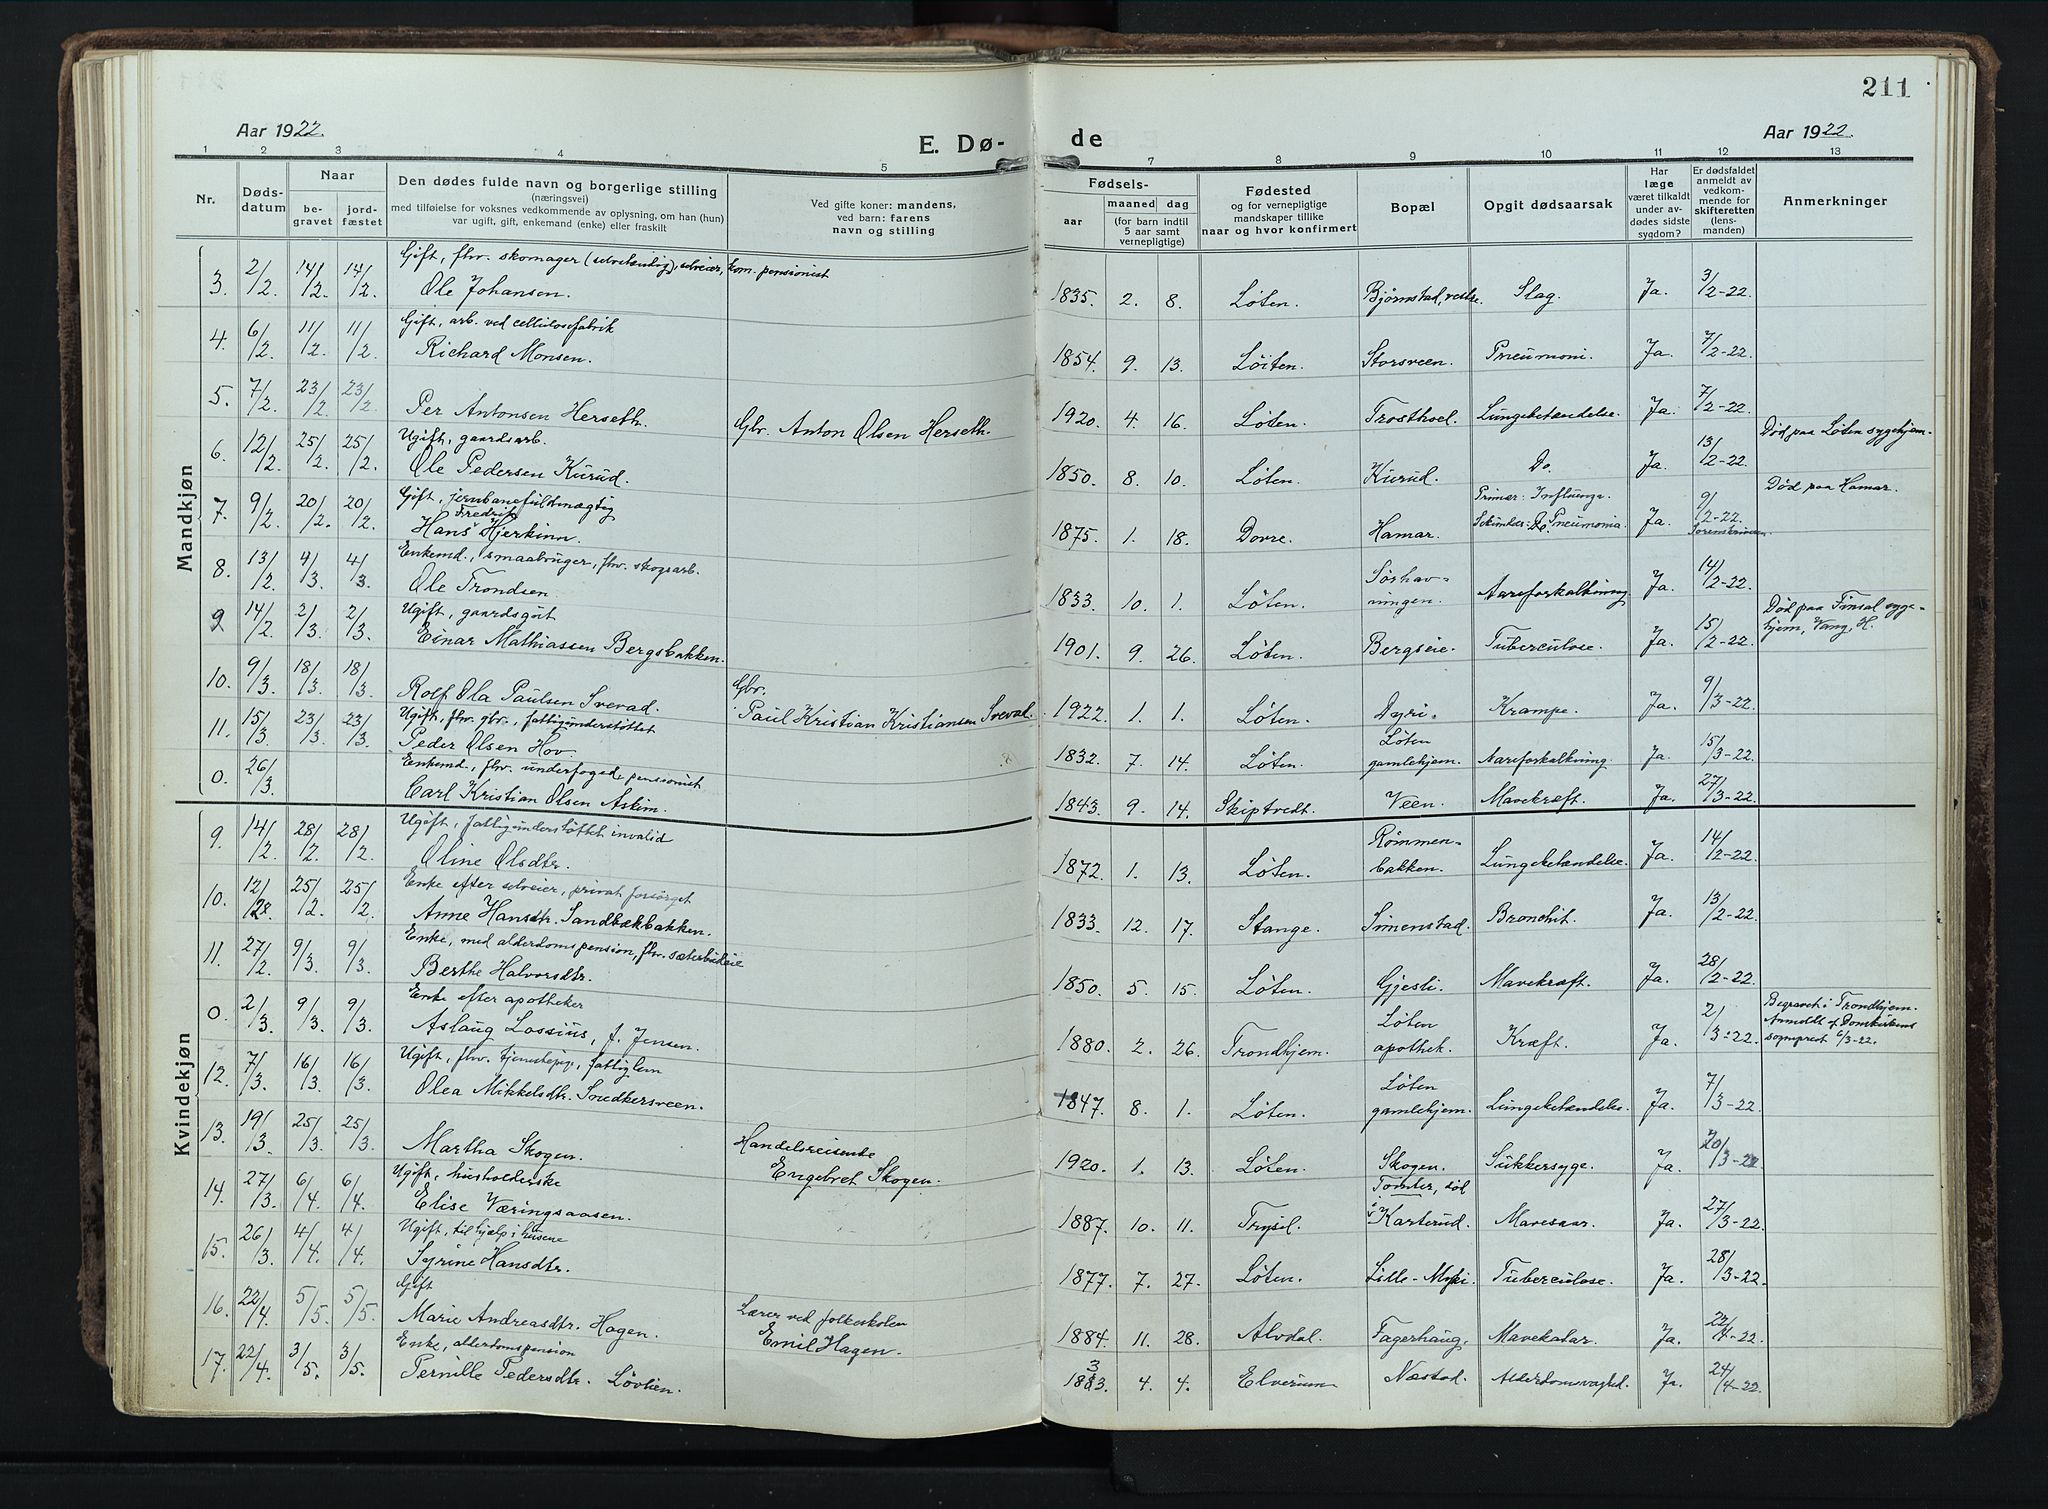 211
Aar 1922.
E. Dø-
de
Aar 1922.
1 2 3 4 5 7 8 9 10 11 12 13
Nr.
Døds-
datum
Naar
be-
gravet
jord-
fæstet
Den dødes fulde navn og borgerlige stilling
(næringsvei)
med tilføielse for voksnes vedkommende av oplysning, om han (hun)
var ugift, gift, enkemand (enke) eller fraskilt
Ved gifte koner: mandens,
ved barn: farens
navn og stilling
Fødsels-
aar
maaned dag
(for barn indtil
5 aar samt
vernepligtige)
Fødested
og for vernepligtige
mandskaper tillike
naar og hvor konfirmert
Bopæl
Opgit dødsaarsak
Har
læge
været tilkaldt
under av-
dødes sidste
sygdom?
Er dødsfaldet
anmeldt av
vedkom-
mende for
skifteretten
(lens-
manden)
Anmerkninger
Mandkjøn
Gift, fhv. skomager (selvstændig), selveier, kom. pensionist
3. 2/2. 14/2. 14/2. Ole Johansen. 1835. 2. 8. Løten. Bjørnstad, vestre. Slag. Ja. 3/2-22.
Gift, arb. ved cellulosefabrik
4. 6/2. 11/2. 11/2. Richard Monsen. 1854. 9. 13. Løiten. Storsveen. Pneumoni. Ja. 7/2-22.
5. 7/2. 23/2. 23/2. Per Antonsen Herseth. Gbr. Anton Olsen Herseth. 1920. 4. 16. Løten. Trosthoel. Lungebetændelse. Ja. 7/2-22.
Ugift, gaardsarb. Død paa Løten sygehjem.
6. 12/2. 25/2. 25/2. Ole Pedersen Kurud. 1850. 8. 10. Løten. Kurud. Do. Ja. 13/2-22.
Gift, jernbanefuldmægtig Primær: Influenza. Død paa Hamar.
Fredrik
7. 9/2. 20/2. 20/2. Hans Hjerkinn. 1875. 1. 18. Dovre. Hamar. Sekundær: Do. Pneumonia. Ja. 9/2-22.
Sorenskriveren
Enkemd., smaabruger, fhv. skogsarb.
8. 13/2. 4/3. 4/3. Ole Trondsen. 1833. 10. 1. Løten. Sørhav-
ningen. Aareforkalkning Ja. 14/2-22.
Ugift, gaardsgut Død paa Finsal syge-
hjem, Vang, H.
9 14/2. 2/3. 2/3. Einar Mathiassen Bergsbakken. 1901. 9. 26. Løten. Bergseie. Tuberculose. Ja. 15/2-22.
Gbr.
10. 9/3. 18/3. 18/3. Rolf Ola Paulsen Svevad. Paul Kristian Kristiansen Svevad. 1922. 1. 1. Løten. Dyri. Krampe. Ja. 9/3-22.
Ugift, fhv. gbr., fattigunderstøttet
11. 15/3. 23/3. 23/3. Peder Olsen Hov 1832. 7. 14. Løten. Løten
gamlehjem. Aareforkalkning. Ja. 15/3-22.
Enkemd., fhv. underfoged, pensionist
0. 26/3. Carl Kristian Olsen Askim. 1843. 9. 14. Skiptvedt. Veen. Mavekræft. Ja. 27/3-22.
Kvindekjøn
Ugift, fattigunderstøttet invalid
9. 14/2. 28/2. 28/2. Oline Olsdtr. 1872. 1. 13. Løten. Rømmen-
bakken. Lungebetændelse. Ja. 14/2-22.
Enke efter selveier, privat forsørget
10. 12/2. 25/2. 25/2. Anne Hansdtr. Sandbækbakken. 1833. 12. 17. Stange. Simenstad. Bronchit. Ja. 13/2-22.
Enke, med alderdomspension, fhv. sæterbudeie
11. 27/2. 9/3. 9/3. Berthe Halvorsdtr. 1850. 5. 15. Løten. Gjesli. Mavekræft. Ja. 28/2-22.
Enke efter apotheker
0. 2/3. 9/3. 9/3. Aslaug Lossius, f. Jensen. 1880. 2. 26. Trondhjem. Løten
apothek. Kræft. Ja. 2/3-22. Begravet i Trondhjem.
Anmeldt af Domkirkens
sogneprest 6/3-22.
Ugift, fhv. tjenestepige, fattiglem
12. 7/3. 16/3. 16/3. Olea Mikkelsdtr. Snedkersveen. 1847. 8. 1. Løten. Løten
gamlehjem. Lungebetændelse. Ja. 7/3-22.
Handelsreisende
13. 19/3. 25/3. 25/3. Martha Skogen. Engebret Skogen. 1920. 1. 13. Løten. Skogen. Sukkersyge. Ja. 20/3-22.
Ugift, husholderske
14. 27/3. 6/4. 6/4. Elise Væringsaasen. 1887. 10. 11. Trysil. Tomter, død
i Karterud. Mavesaar. Ja. 27/3-22.
Ugift, til hjælp i husene
15. 26/3. 4/4. 4/4. Syrine Hansdtr. 1877. 7. 27. Løten. Lille-Mysi. Tuberculose. Ja. 28/3-22.
Gift
16. 22/4. 5/5. 5/5. Marie Andreasdtr. Hagen. Lærer ved folkeskolen
Emil Hagen. 1884. 11. 28. Alvdal. Fagerhaug. Mavekatar. Ja. 22/4-22.
Enke, alderdomspension
17. 22/4. 3/5. 3/5. Pernille Pedersdtr. Løvlien. 1833. 4. 4. Elverum Næstad. Alderdomsvaghed. Ja. 24/4-22.